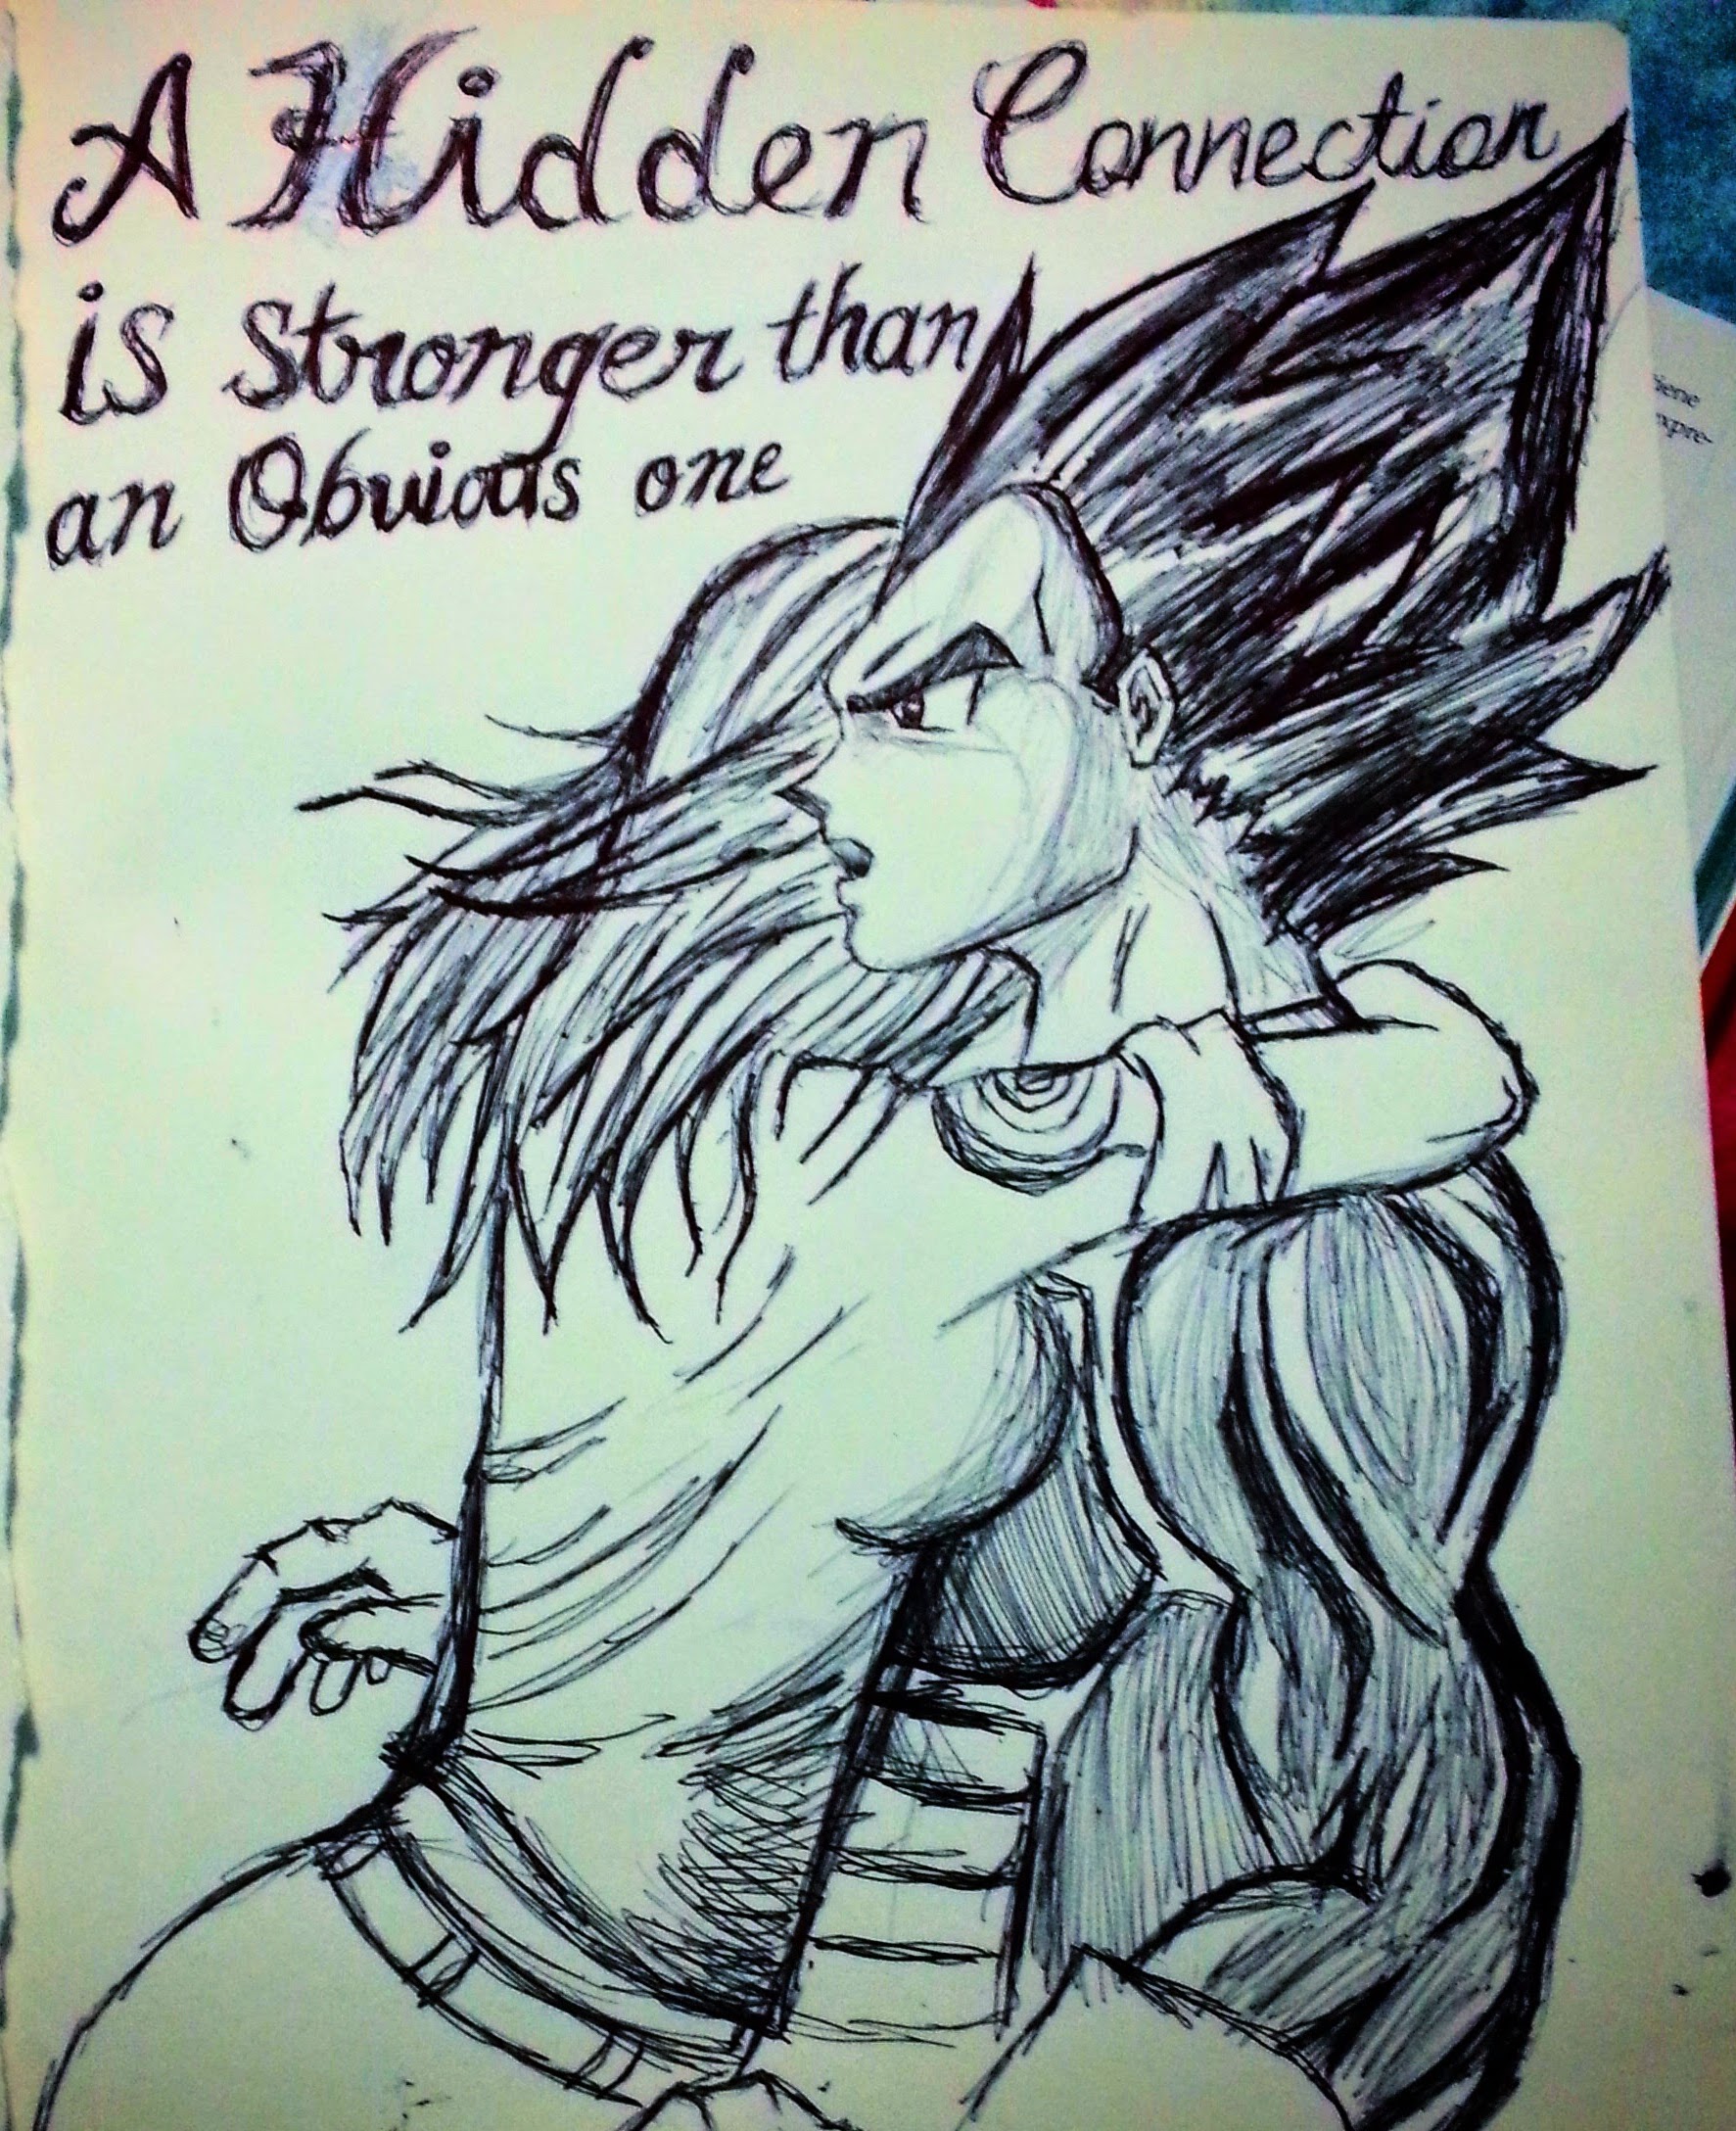 A Hidden Connection
is Stronger than
an Obvious one